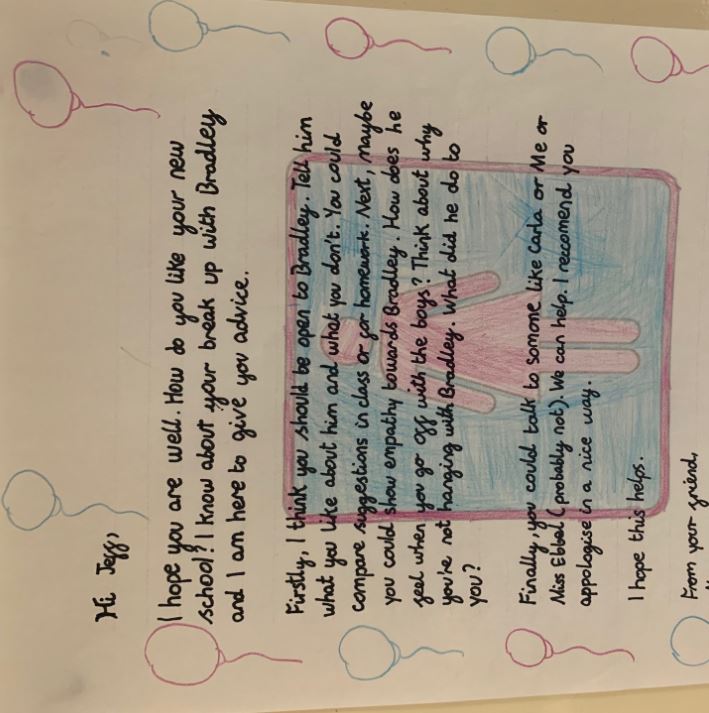 Hi Jeff,
I hope you are well. How do you like your new
school? I know about your break up with Bradley
and I am here to give you advice.
Firstly, I think you should be open to Bradley. Tell him
what you like about him and what you don't. You could
compare suggestions in class or for homework. Next, maybe
you could show empathy towards Bradley. How does he
feel when you go off with the boys? Think about why
you're not hanging with Bradley. What did he do to
you?
Finally, you could talk to somone like Carla or Me or
Miss Ebbel (probably not). We can help. I reccomend you
appologise in a nice way.
I hope this helps.
From your friend,